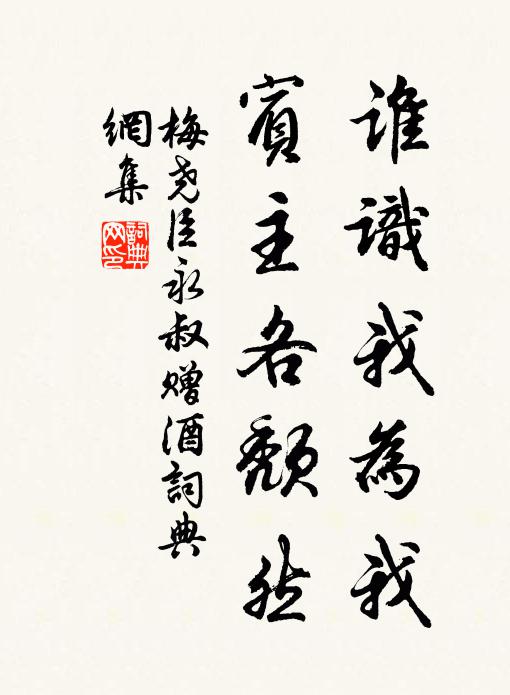 誰識我為我
賓主各頹然
梅尧臣永叔赠酒詞典
網集
詞典
网印